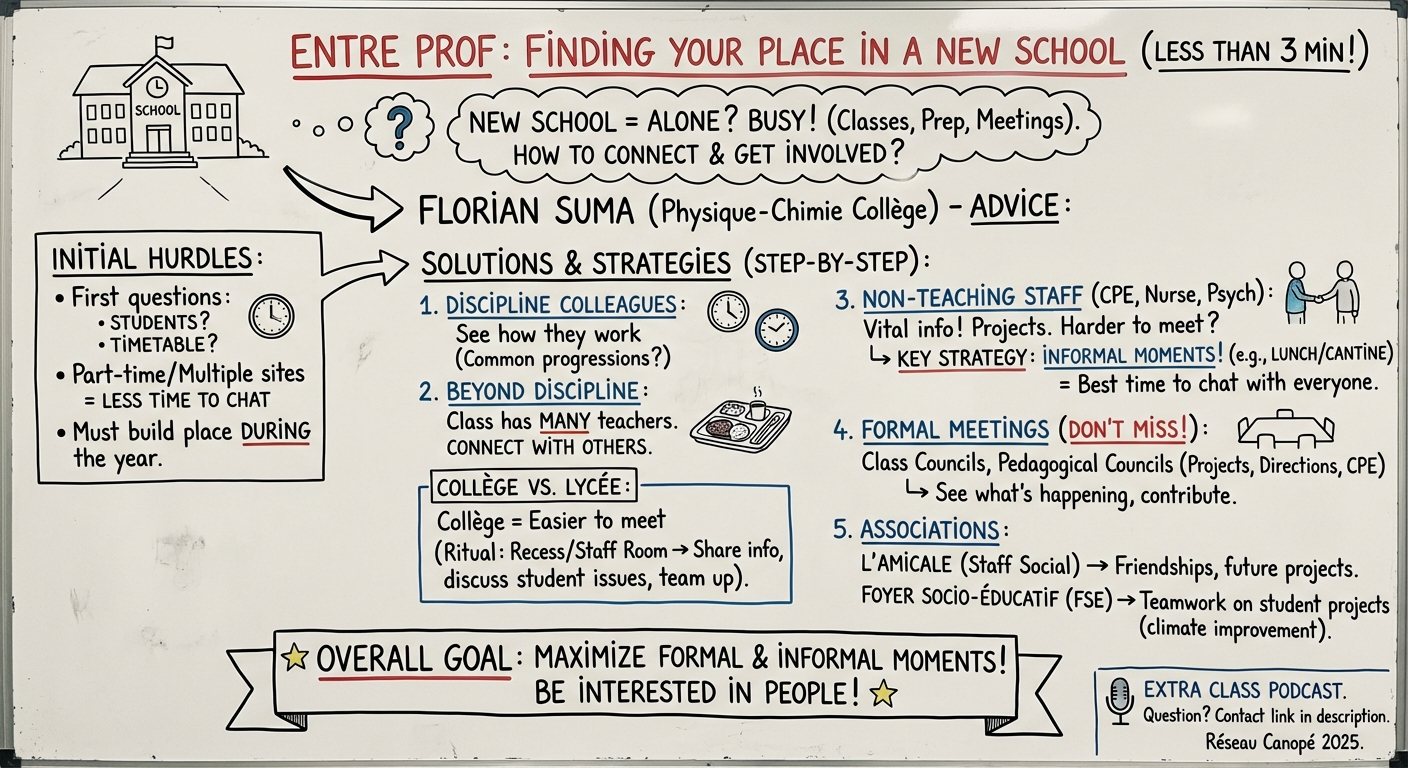 ENTRE PROF: FINDING YOUR PLACE IN A NEW SCHOOL (LESS THAN 3 MIN!)
SCHOOL
?
NEW SCHOOL = ALONE? BUSY! (Classes, Prep, Meetings).
HOW TO CONNECT & GET INVOLVED?
FLORIAN SUMA (Physique-Chimie Collège) - ADVICE:
INITIAL HURDLES:
• First questions:
• STUDENTS?
• TIMETABLE?
• Part-time/Multiple sites
= LESS TIME TO CHAT
• Must build place DURING
the year.
SOLUTIONS & STRATEGIES (STEP-BY-STEP):
1. DISCIPLINE COLLEAGUES:
See how they work
(Common progressions?)
2. BEYOND DISCIPLINE:
Class has MANY teachers.
CONNECT WITH OTHERS.
COLLÈGE VS. LYCÉE:
Collège = Easier to meet
(Ritual: Recess/Staff Room → Share info,
discuss student issues, team up).
3. NON-TEACHING STAFF (CPE, Nurse, Psych):
Vital info! Projects. Harder to meet?
↳ KEY STRATEGY: INFORMAL MOMENTS! (e.g., LUNCH/CANTINE)
= Best time to chat with everyone.
4. FORMAL MEETINGS (DON'T MISS!):
Class Councils, Pedagogical Councils (Projects, Directions, CPE)
↳ See what's happening, contribute.
5. ASSOCIATIONS:
L'AMICALE (Staff Social) → Friendships, future projects.
FOYER SOCIO-ÉDUCATIF (FSE) → Teamwork on student projects
(climate improvement).
OVERALL GOAL: MAXIMIZE FORMAL & INFORMAL MOMENTS!
BE INTERESTED IN PEOPLE!
EXTRA CLASS PODCAST.
Question? Contact link in description.
Réseau Canopé 2025.